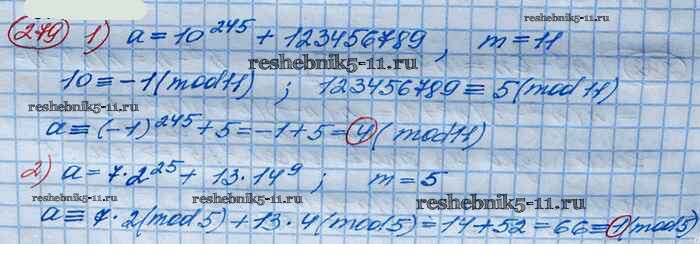 279 1) a = 10^245 + 123456789, m = 11
reshebnik5-11.ru
reshebnik5-11.ru
10 ≡ -1 (mod 11); 123456789 ≡ 5 (mod 11)
reshebnik5-11.ru
reshebnik5-11.ru
a ≡ (-1)^245 + 5 = -1 + 5 = 4 (mod 11)
2) a = 7·2^25 + 13·14^9; m = 5
reshebnik5-11.ru
reshebnik5-11.ru
a ≡ 7·2 (mod 5) + 13·4 (mod 5) = 14 + 52 = 66 ≡ 1 (mod 5)
reshebnik5-11.ru